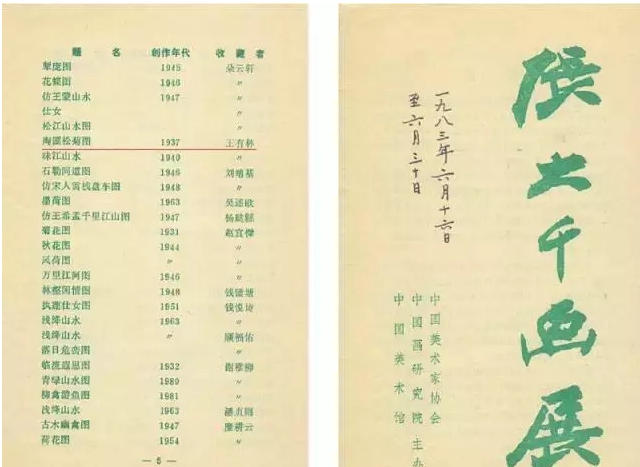 题 名 創作年代 收藏者
犀庞图 1945 朵云轩
花蝶图 1946 〃
仿王蒙山水 1947 〃
仕女 〃
松江山水图 〃
陶渊松菊图 1937 王有林
味江山水 1940 〃
石勒问道图 1946
仿宋人雪栈盘车图 1948 〃
墨荷图 1963
仿王希孟千里江山图 1947
菊花图 1931
秋花图 1944 〃
风荷图 〃 〃
万里江河图 1946 〃
1948
执莲仕女图 1951
浅绛山水 1963 〃
浅绛山水 〃 顾福佑
落日危峦图 〃
临流遐思图 1932 谢稚柳
青绿山水图 1980 〃
柳禽游鱼图 1981 〃
浅绛山水 1963 潘贞则
古木幽禽图 1947 糜耕云
荷花图 1954 〃
— 5 —
張大千画展
一九八三年六月十六日
至六月三十日
中国美术家协会
中国画研究院主办
中国美术馆